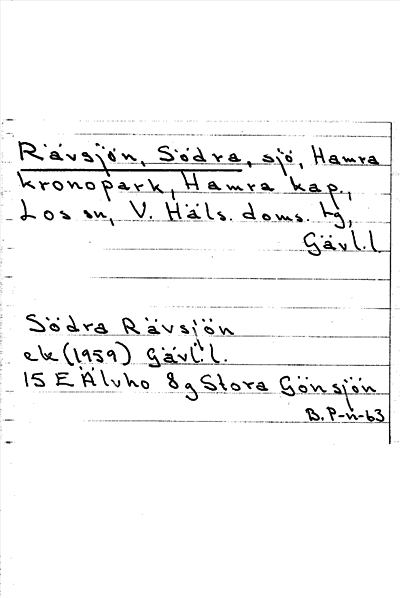 Rävsjön, Södra, sjö, Hamra
kronopark, Hamra kap.,
Los sn, V. Häls. doms. tg,
Gävl. l
Södra Rävsjön
ek (1959) Gävl. l.
15 E Älvho 8g Stora Gönsjön
B. P-n-63